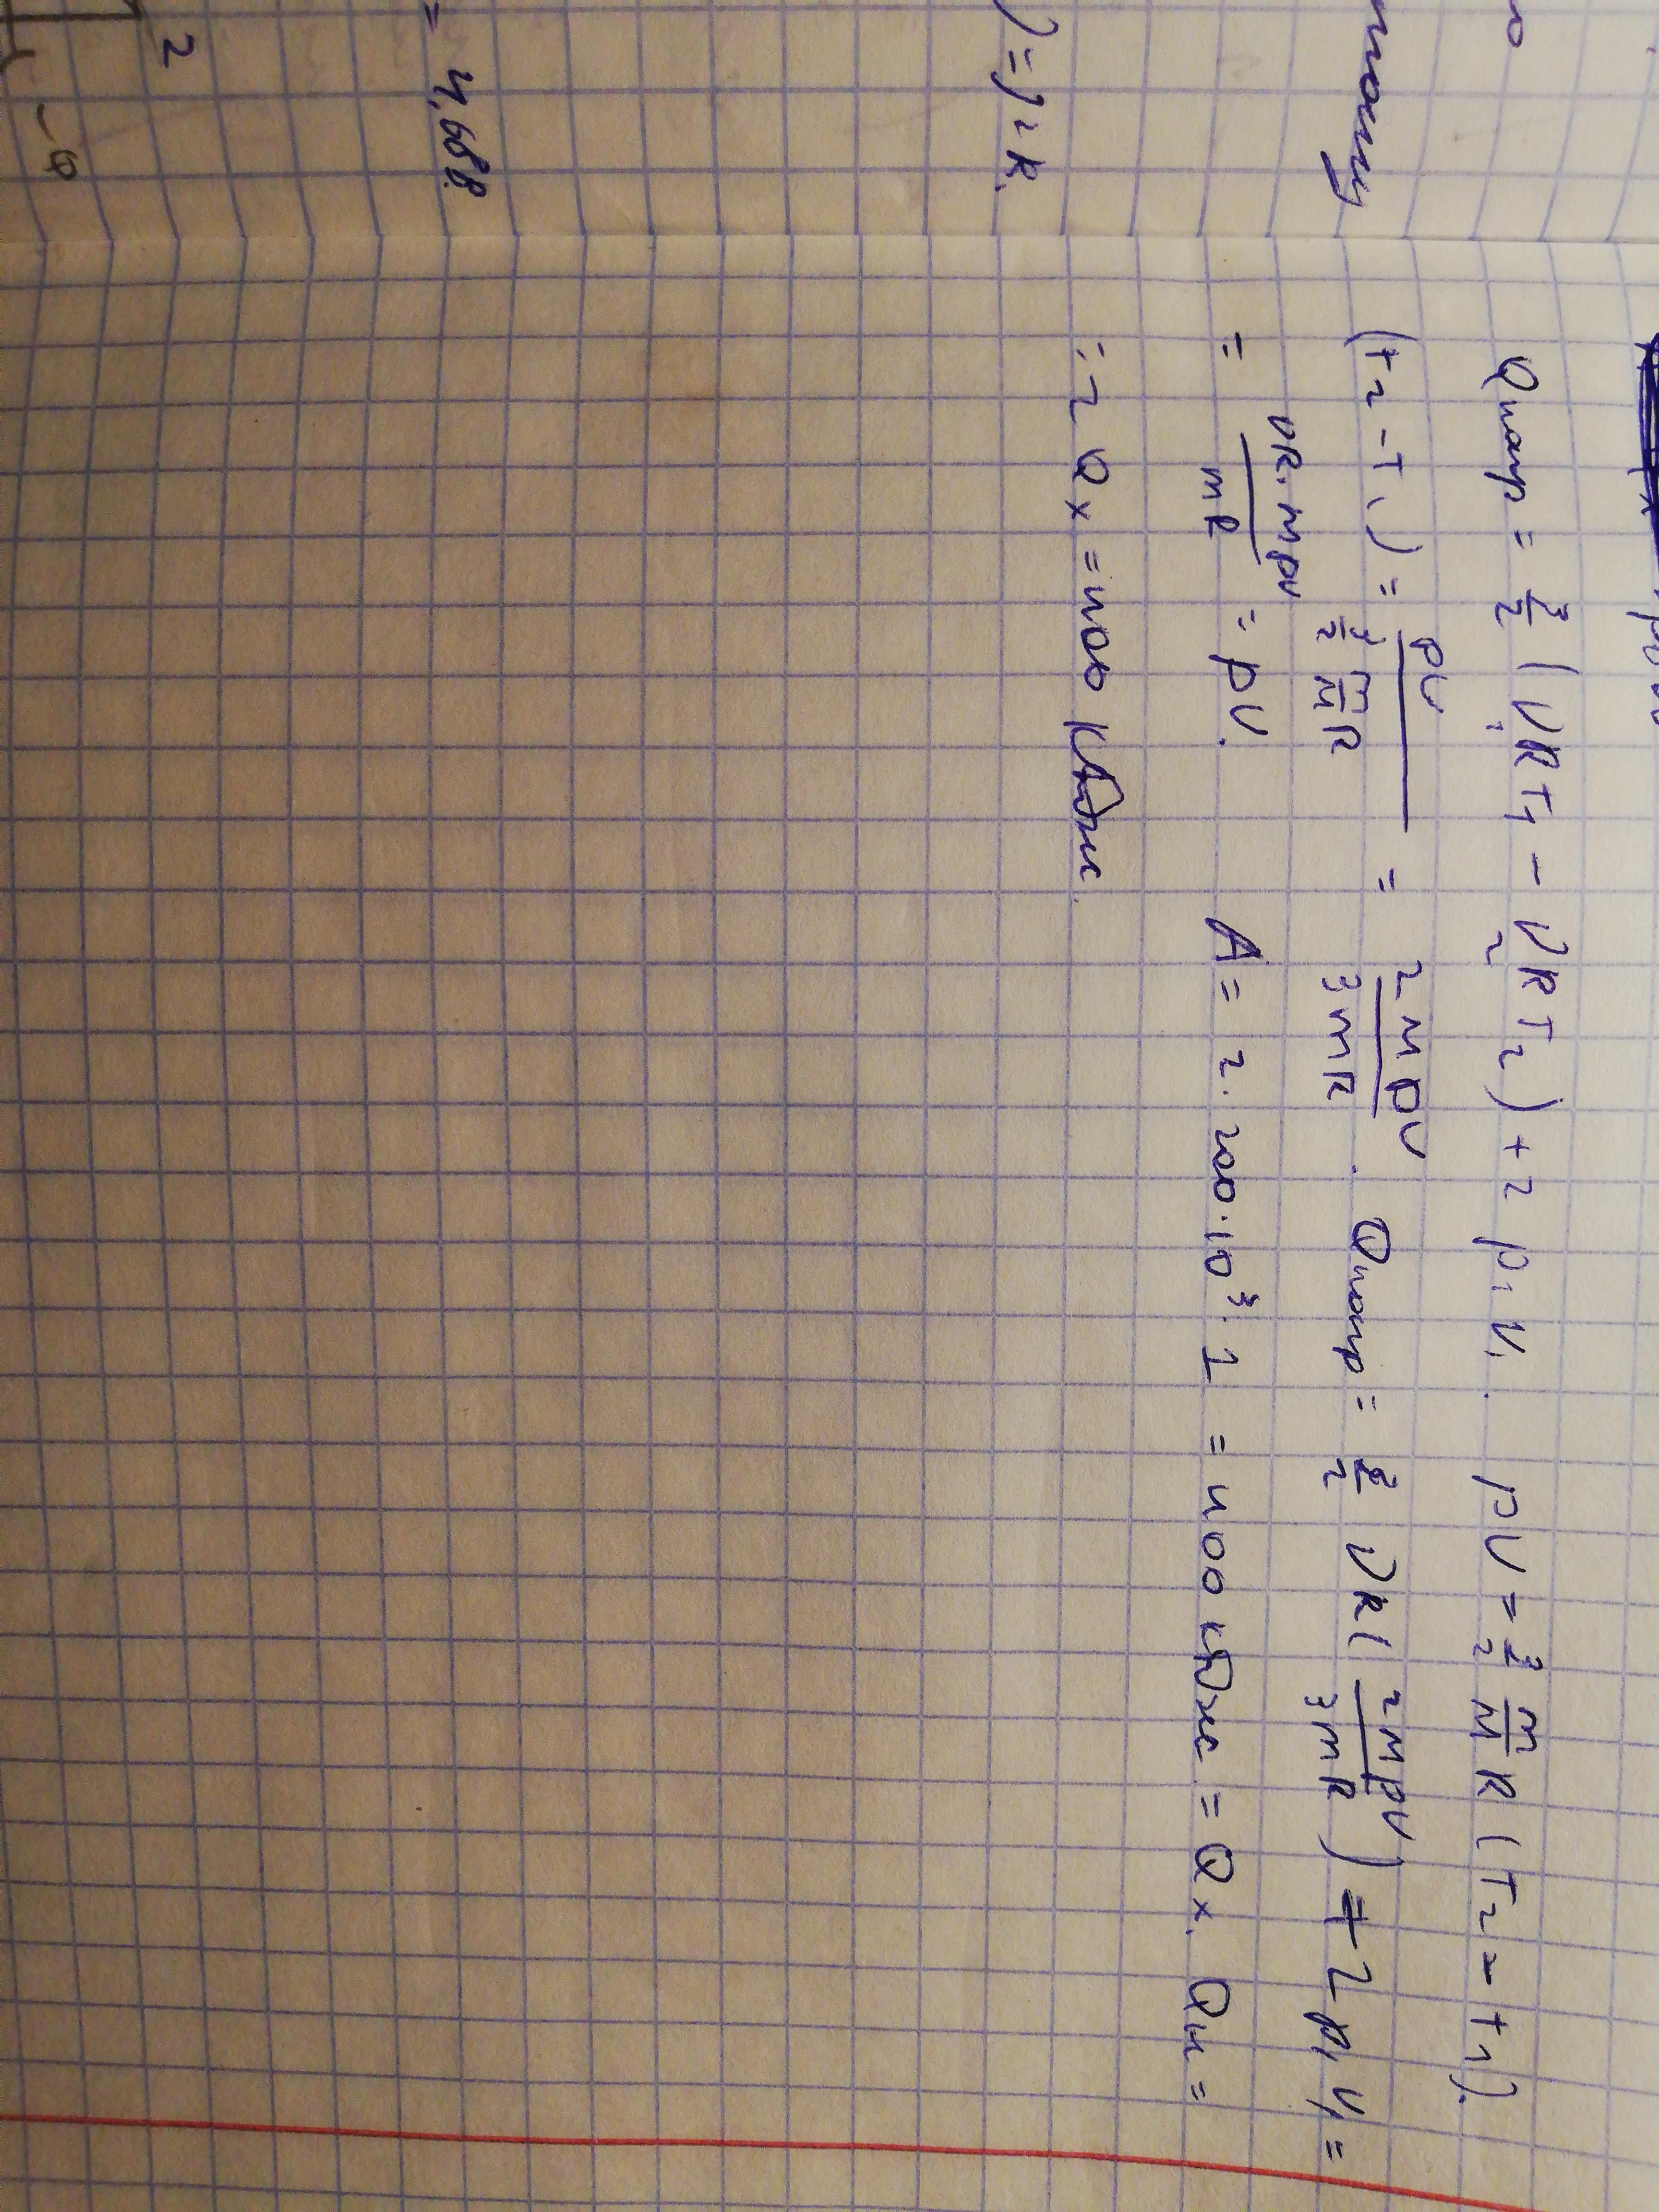 Qнагр = 3/2 (ν₁RT₁ − ν₂RT₂) + 2p₁V₁. pV = 3/2 m/M R (T₂ − T₁).
(T₂ − T₁) = pV / (3/2 m/M R) = 2MpV / 3mR. Qнагр = 3/2 νR (2MpV / 3mR) + 2p₁V₁ =
= νR·MpV / mR = pV. A = 2·200·10³·1 = 400 кДж = Qх. Qн =
= 2Qх = 400 кДж.
) = J₂R.
= 4,688
2